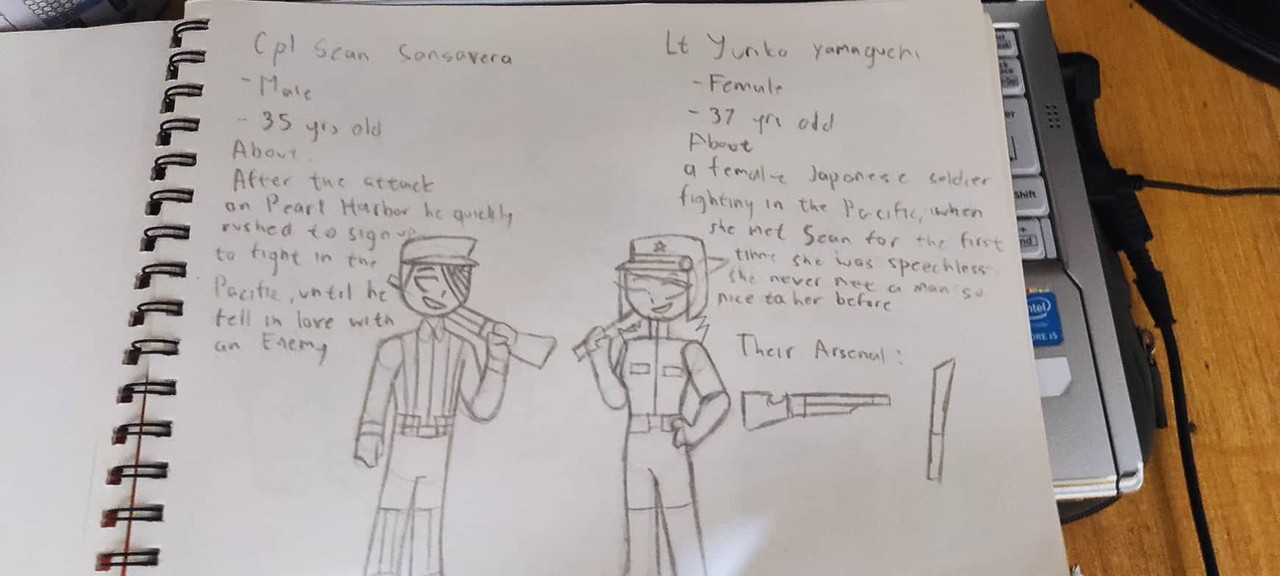 Cpl Sean Sansavera
- Male
- 35 yrs old
About:
After the attack
on Pearl Harbor he quickly
rushed to sign up
to fight in the
Pacific, until he
fell in love with
an Enemy
Lt Yuriko Yamaguchi
- Female
- 37 yrs old
About
a female Japanese soldier
fighting in the Pacific, when
she met Sean for the first
time she was speechless
she never met a man so
nice to her before
Their Arsenal:
Shift
intel
CORE i5